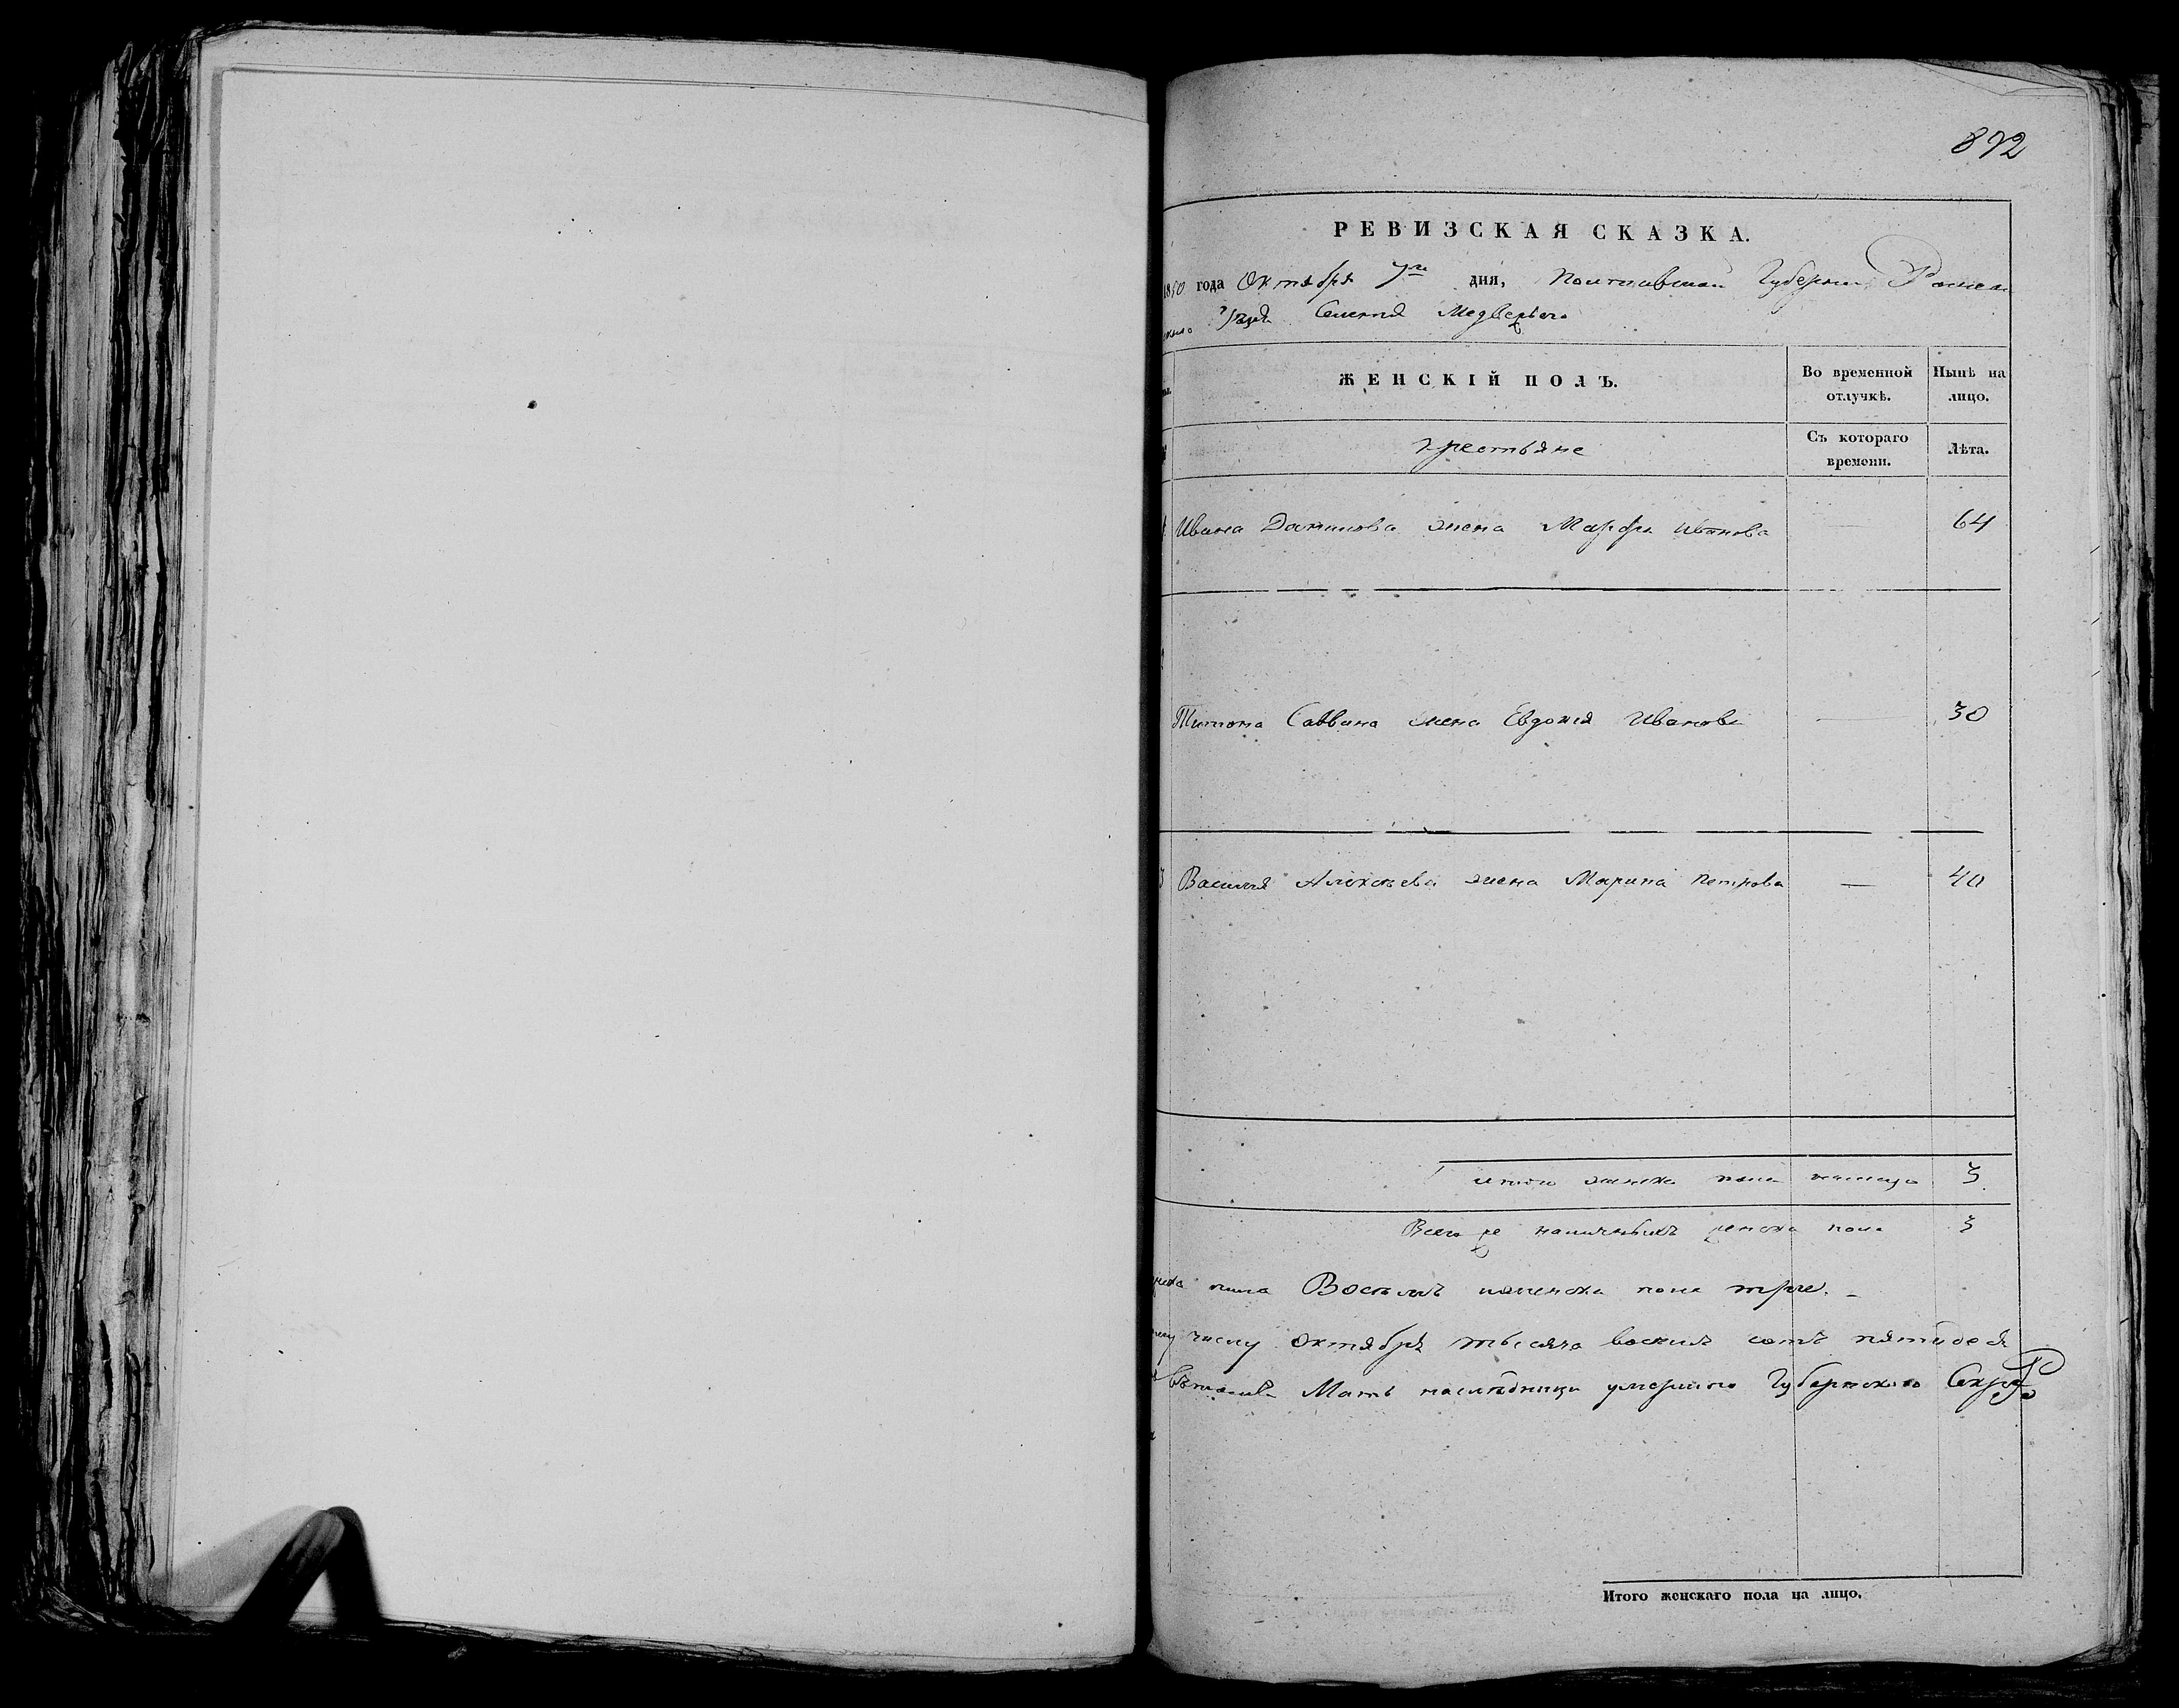 892
РЕВИЗСКАЯ СКАЗКА.
1850 года Октября 7го дня, Полтавской Губернии Ромен
Уезда Селения Медвежьего
ЖЕНСКІЙ ПОЛЪ.
Во временной отлучкѣ.
Нынѣ на лицо.
крестьяне
Съ котораго времени.
Лѣта.
Ивана Данилова жена Марфа Иванова 64
Тимона Саввина жена Евдокия Иванова — 30
3 Василия Алексеева жена Марина Петрова — 40
итого женска пола налицо 3
Всего же наличныхъ женска пола 3
пола Восемъ женска пола трие. –
числу Октября тысяча восемъ сотъ пятидеся
Мать наследници умершого Губернского Секре
Итого женскаго пола на лицо.